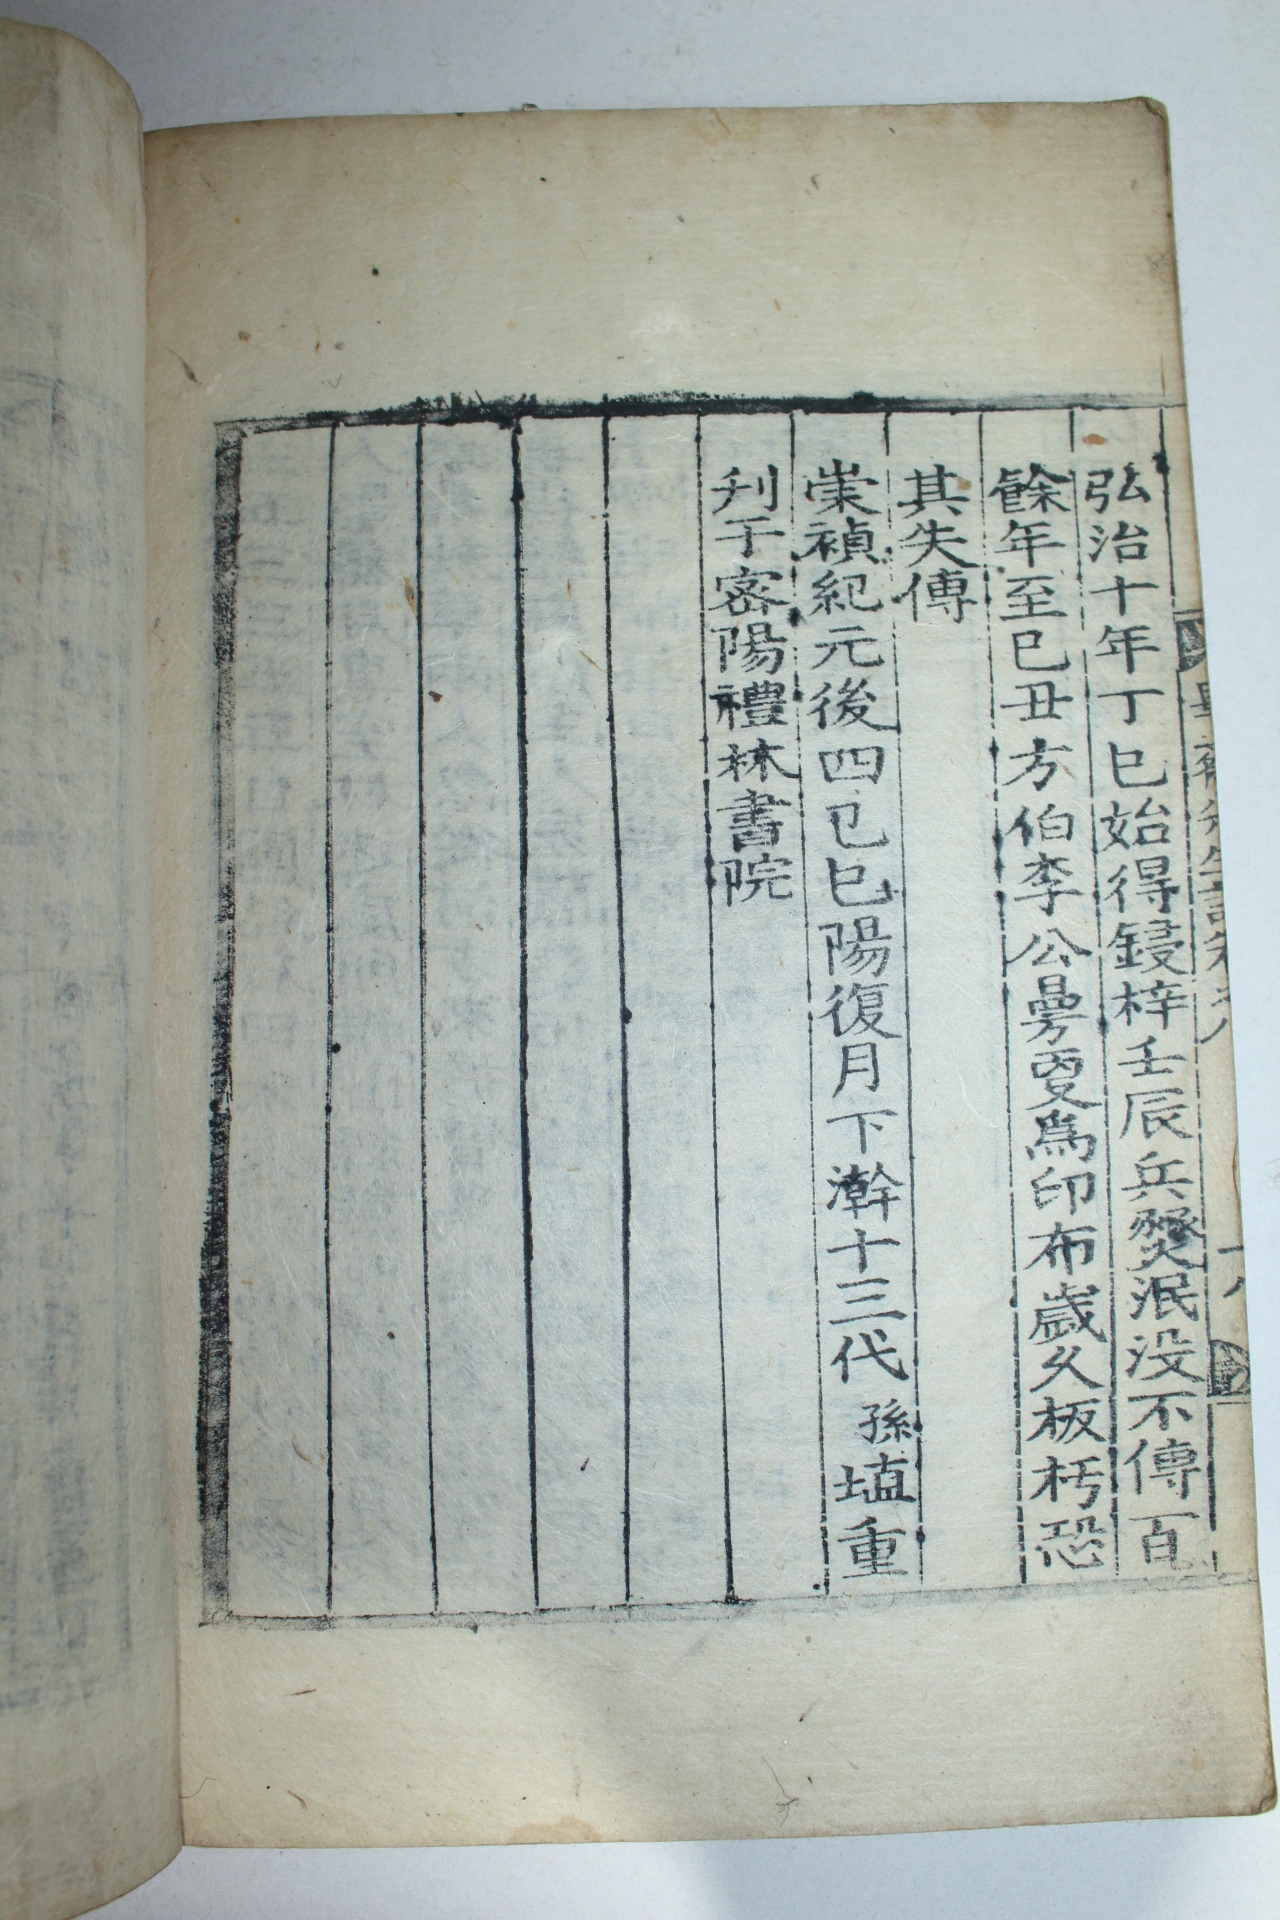 弘治十年丁巳始得鋟梓壬辰兵燹泯没不傳百
餘年至己丑方伯李公曼更爲印布歲久板朽恐
其失傳
崇禎紀元後四己巳陽復月下澣十三代孫埴重
刊于密陽禮林書院